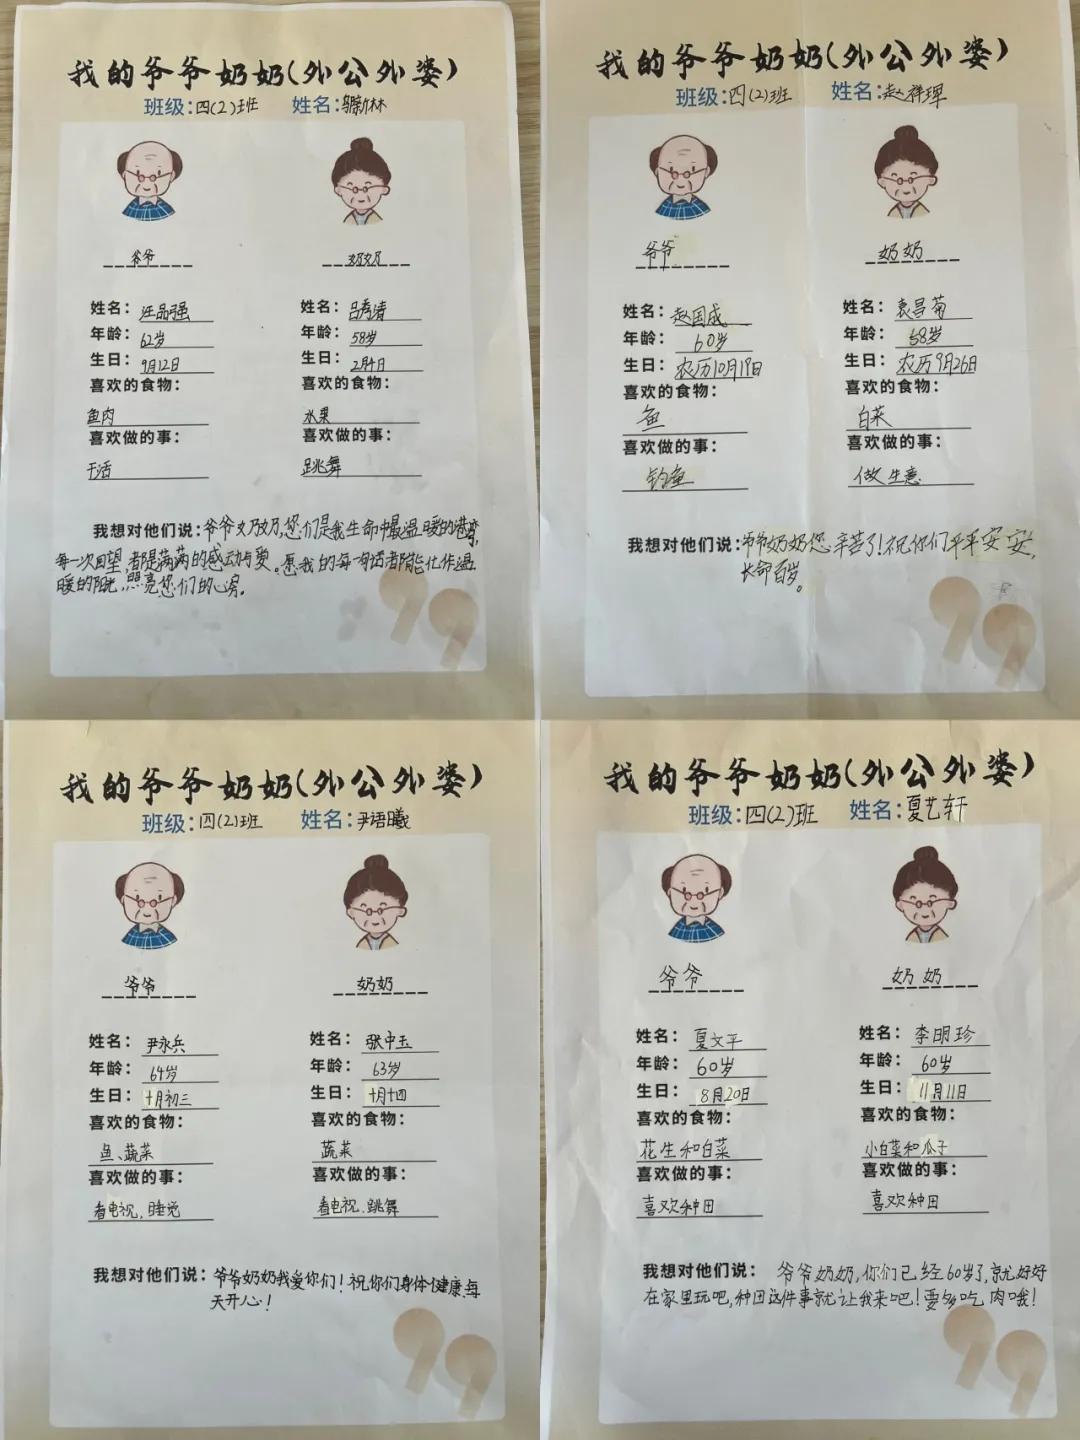 我的爷爷奶奶(外公外婆)
班级:四(2)班 姓名:
爷爷 奶奶
姓名: 汪品强 姓名: 吕秀清
年龄: 62岁 年龄: 58岁
生日: 9月12日 生日: 2月4日
喜欢的食物: 喜欢的食物:
鱼肉 水果
喜欢做的事: 喜欢做的事:
干活 跳舞
我想对他们说:爷爷奶奶,您们是我生命中最温暖的港湾,
每一次回望,都是满满的感动与爱。愿我的每一句话都能化作温
暖的阳光,照亮您们的心房。
我的爷爷奶奶(外公外婆)
班级:四(2)班 姓名:赵祥珲
爷爷 奶奶
姓名: 赵国成 姓名: 袁昌菊
年龄: 60岁 年龄: 58岁
生日: 农历10月19日 生日: 农历9月26日
喜欢的食物: 喜欢的食物:
鱼 白菜
喜欢做的事: 喜欢做的事:
钓鱼 做生意
我想对他们说:爷爷奶奶您辛苦了!祝你们平平安安,
长命百岁。
我的爷爷奶奶(外公外婆)
班级:四(2)班 姓名:尹语曦
爷爷 奶奶
姓名: 尹永兵 姓名: 张中玉
年龄: 64岁 年龄: 63岁
生日: 十月初三 生日: 十月十四
喜欢的食物: 喜欢的食物:
鱼、蔬菜 蔬菜
喜欢做的事: 喜欢做的事:
看电视,睡觉 看电视.跳舞
我想对他们说:爷爷奶奶我爱你们!祝你们身体健康,每
天开心!
我的爷爷奶奶(外公外婆)
班级:四(2)班 姓名:夏艺轩
爷爷 奶奶
姓名: 夏文平 姓名: 李明珍
年龄: 60岁 年龄: 60岁
生日: 8月20日 生日: 11月11日
喜欢的食物: 喜欢的食物:
花生和白菜 小白菜和瓜子
喜欢做的事: 喜欢做的事:
喜欢种田 喜欢种田
我想对他们说: 爷爷奶奶,你们已经60岁了,就好好
在家里玩吧,种田这件事就让我来吧!要多吃肉哦!